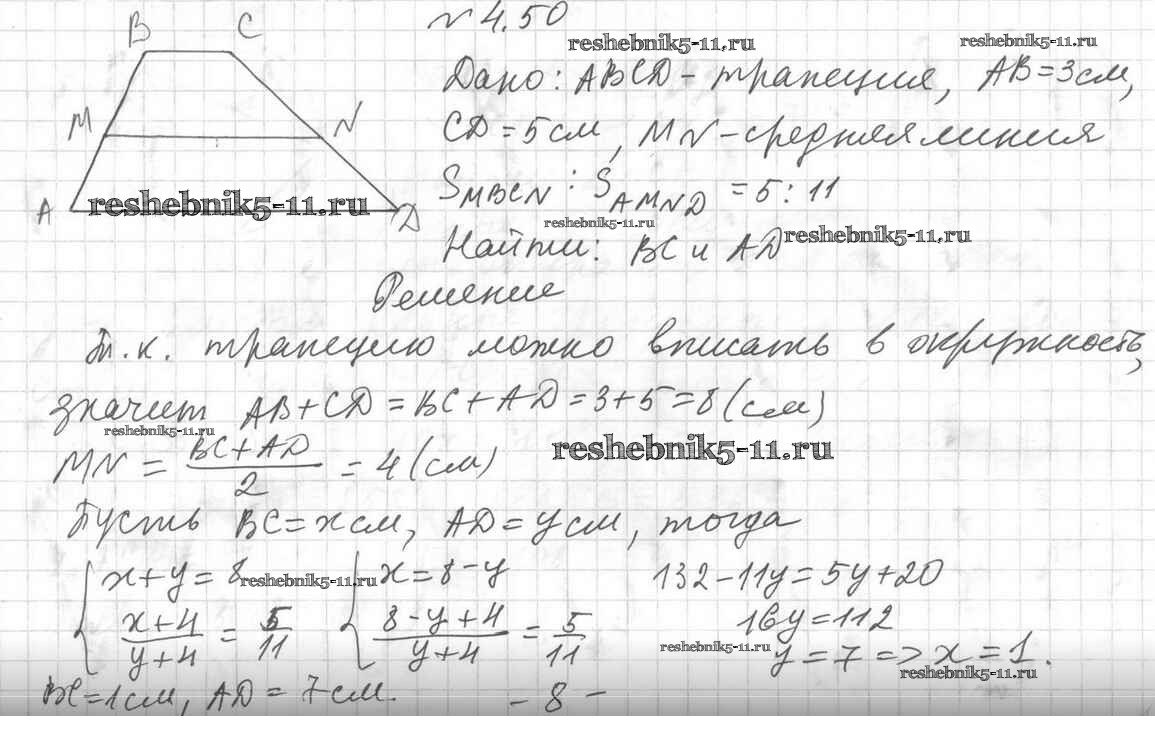 N 4.50
reshebnik5-11.ru
reshebnik5-11.ru
B C
Дано: ABCD - трапеция, AB = 3 см,
M N
CD = 5 см, MN - средняя линия
S MBCN : S AMND = 5 : 11
reshebnik5-11.ru
A D
reshebnik5-11.ru
Найти: BC и AD
reshebnik5-11.ru
Решение
Т.к. трапецию можно вписать в окружность,
значит AB + CD = BC + AD = 3 + 5 = 8 (см)
reshebnik5-11.ru
reshebnik5-11.ru
MN = BC + AD / 2 = 4 (см)
Пусть BC = x см, AD = y см, тогда
{ x + y = 8 { x = 8 - y 132 - 11y = 5y + 20
reshebnik5-11.ru
x + 4 / y + 4 = 5 / 11 8 - y + 4 / y + 4 = 5 / 11 16y = 112
reshebnik5-11.ru
y = 7 => x = 1.
reshebnik5-11.ru
BC = 1 см, AD = 7 см.
- 8 -